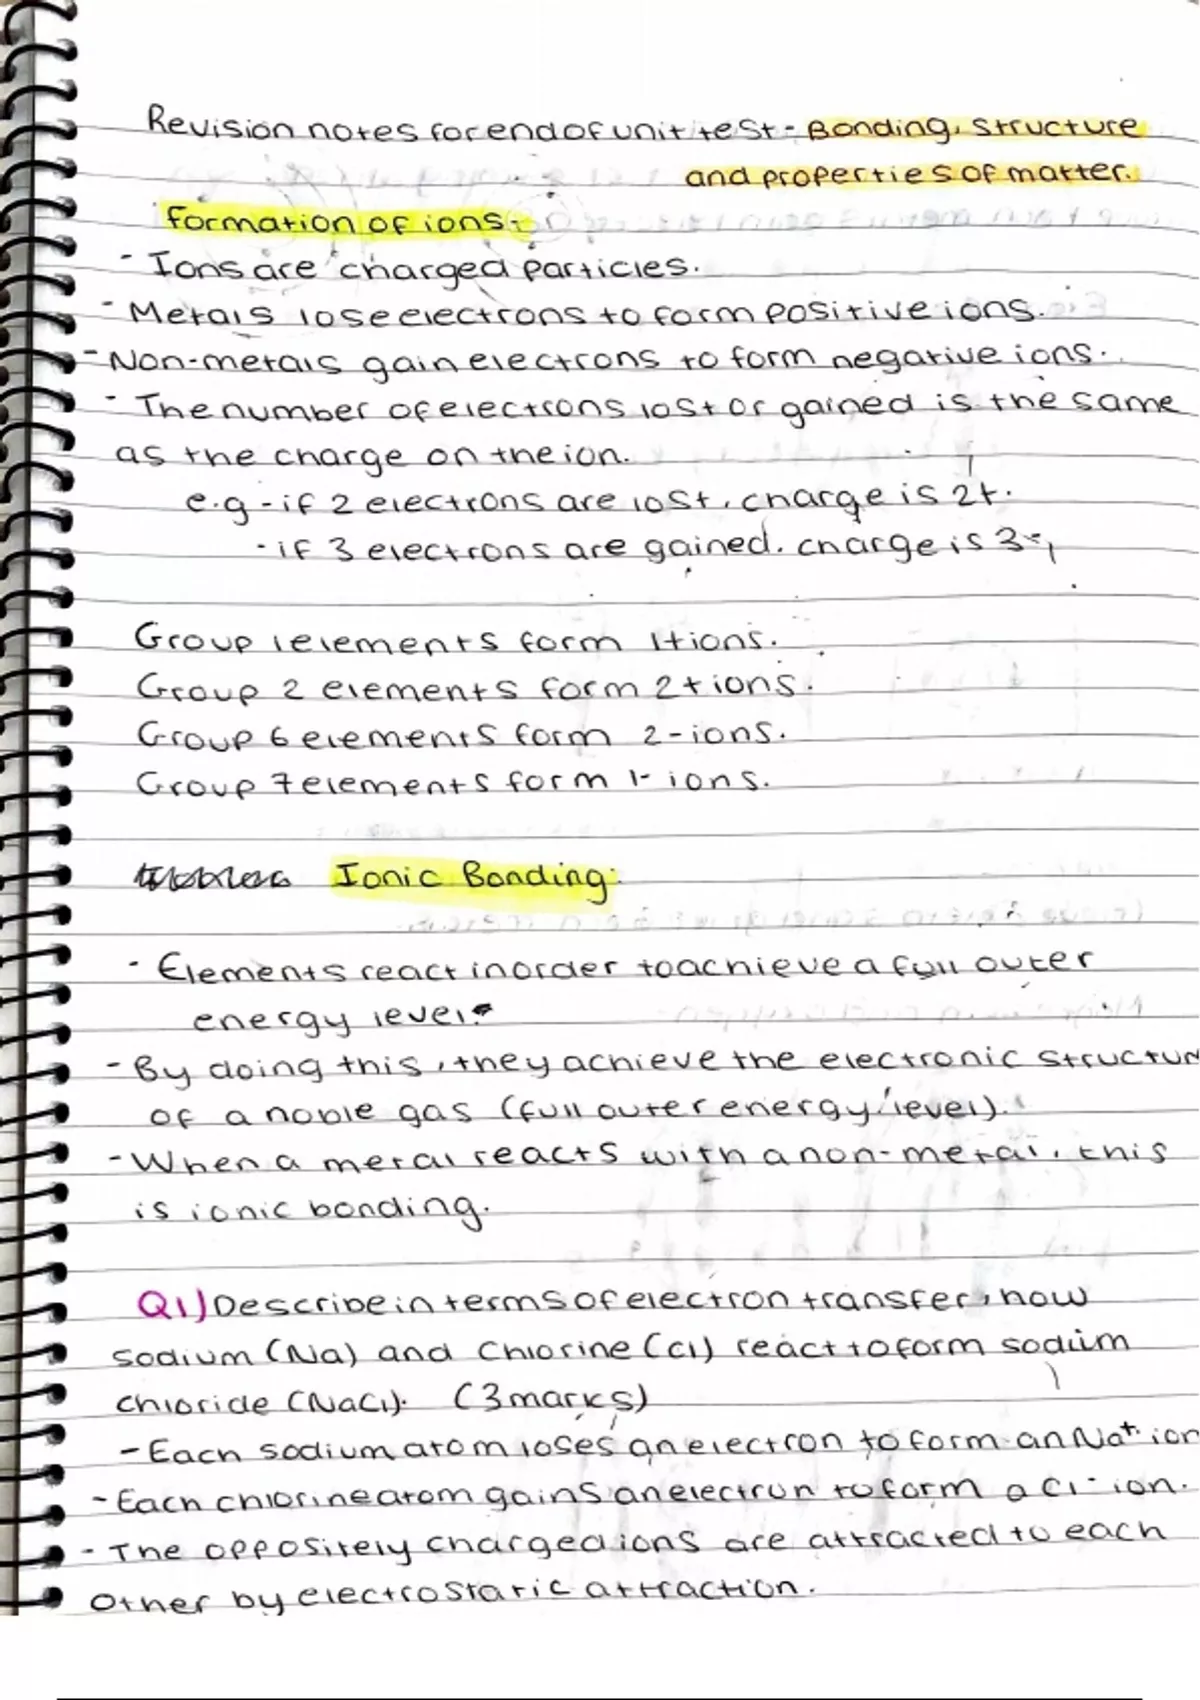 Revision notes for end of unit test - Bonding, structure
and properties of matter.
Formation of ions:
- Ions are charged particles.
- Metals lose electrons to form positive ions.
- Non-metals gain electrons to form negative ions.
- The number of electrons lost or gained is the same
as the charge on the ion.
e.g - if 2 electrons are lost, charge is 2+.
- if 3 electrons are gained, charge is 3-,
Group 1 elements form 1+ ions.
Group 2 elements form 2+ ions.
Group 6 elements form 2- ions.
Group 7 elements form 1- ions.
Ionic Bonding:
- Elements react in order to achieve a full outer
energy level.
- By doing this, they achieve the electronic structur
of a noble gas (full outer energy level).
- When a metal reacts with a non-metal, this
is ionic bonding.
Q1) Describe in terms of electron transfer, how
sodium (Na) and Chlorine (Cl) react to form sodium
chloride (NaCl). (3 marks)
- Each sodium atom loses an electron to form an Na+ ion
- Each chlorine atom gains an electron to form a Cl- ion.
- The oppositely charged ions are attracted to each
other by electrostatic attraction.